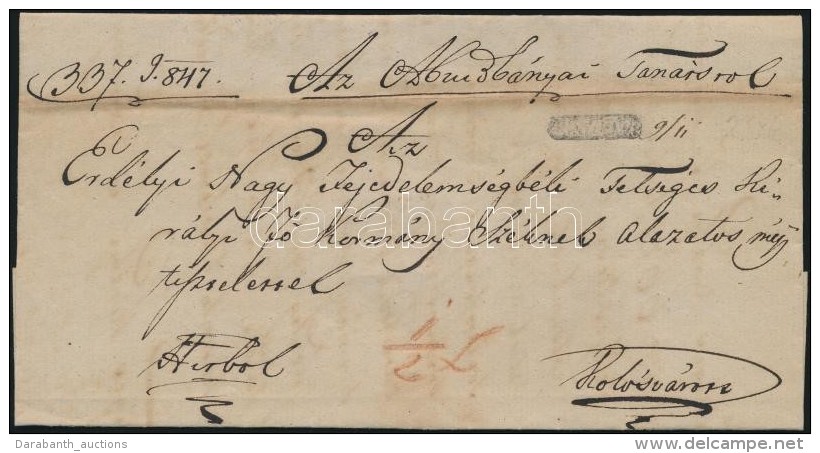 337. J. 847. Az Abrudbányai Tanátstol
9/11
Az
Erdélyi Nagy Fejedelemségbéli Felséges Ki-
rályi Fő Kormány Széknek alazatos meg
tisztelessel
Hivbol
1/2
Kolosvárra
darabanth
Darabanth_auctions
delcampe.net